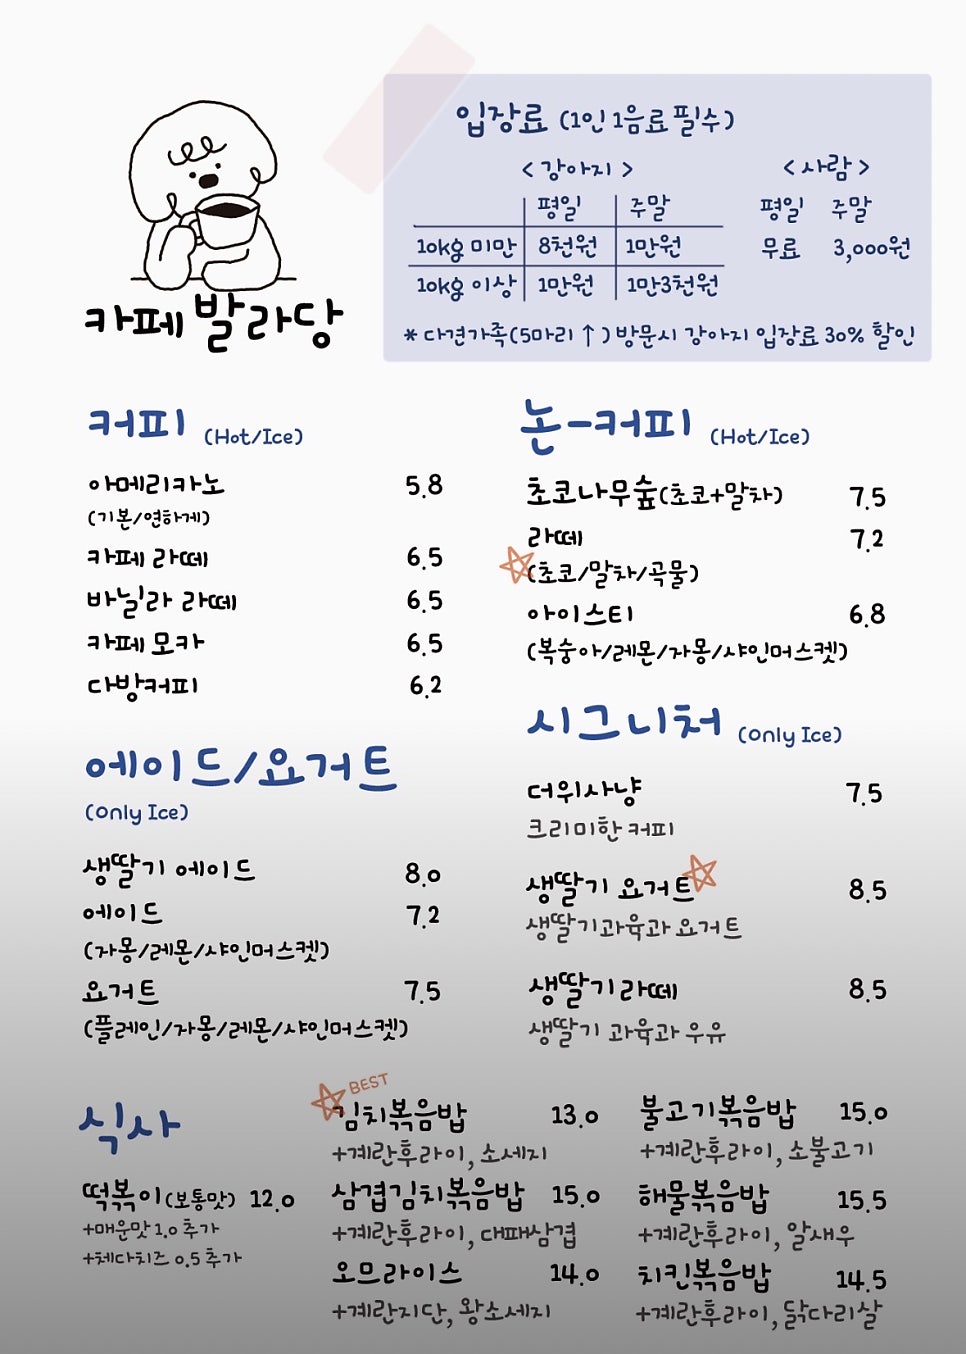 카페 발라당
입장료 (1인 1음료 필수)
<강아지>
평일 주말
10kg 미만 8천원 1만원
10kg 이상 1만원 1만3천원
<사람>
평일 주말
무료 3,000원
* 다견가족(5마리↑) 방문시 강아지 입장료 30% 할인
커피 (Hot/Ice)
아메리카노 5.8
(기본/연하게)
카페 라떼 6.5
바닐라 라떼 6.5
카페 모카 6.5
다방커피 6.2
논-커피 (Hot/Ice)
초코나무숲(초코+말차) 7.5
라떼 7.2
(초코/말차/곡물)
아이스티 6.8
(복숭아/레몬/자몽/샤인머스켓)
에이드/요거트
(Only Ice)
생딸기 에이드 8.0
에이드 7.2
(자몽/레몬/샤인머스켓)
요거트 7.5
(플레인/자몽/레몬/샤인머스켓)
시그니처 (Only Ice)
더위사냥 7.5
크리미한 커피
생딸기 요거트 8.5
생딸기과육과 요거트
생딸기라떼 8.5
생딸기 과육과 우유
식사
떡볶이(보통맛) 12.0
+매운맛 1.0 추가
+체다치즈 0.5 추가
BEST
김치볶음밥 13.0
+계란후라이, 소세지
삼겹김치볶음밥 15.0
+계란후라이, 대패삼겹
오므라이스 14.0
+계란지단, 왕소세지
불고기볶음밥 15.0
+계란후라이, 소불고기
해물볶음밥 15.5
+계란후라이, 알새우
치킨볶음밥 14.5
+계란후라이, 닭다리살